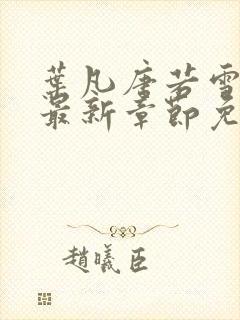 葉凡唐若雪
最新章節免
趙曦臣